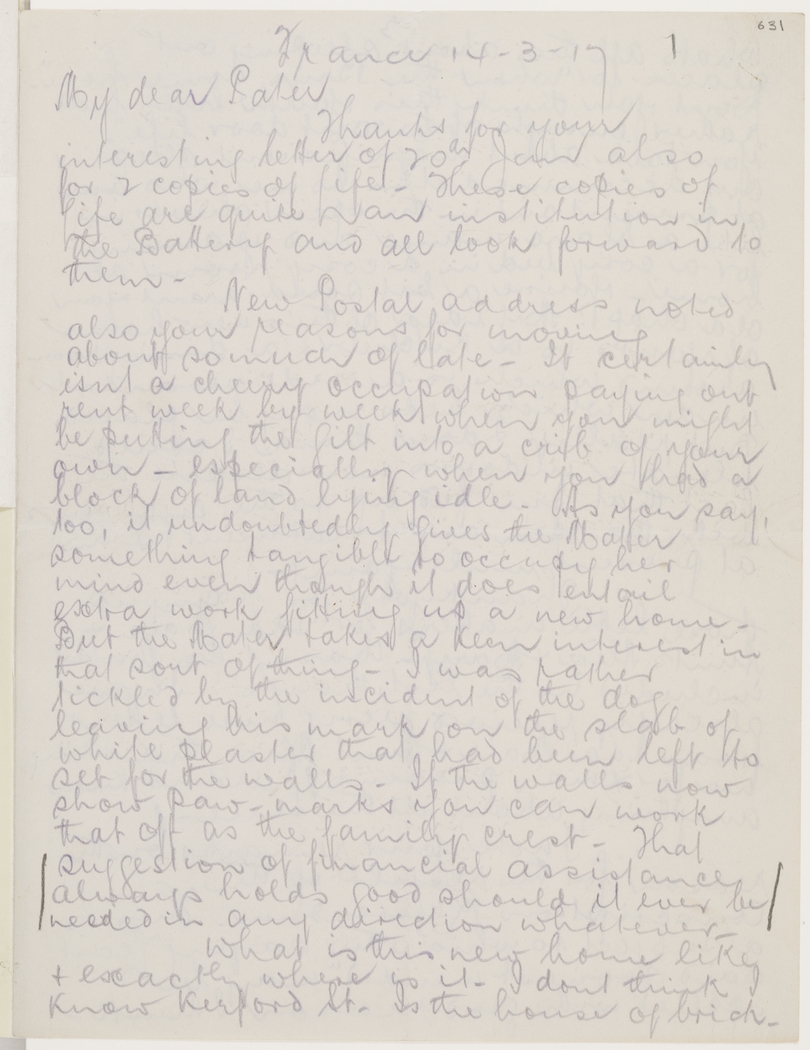 631
France 14-3-17
1
My dear Pater
Thanks for your
interesting letter of 20th Jan also
for 2 copies of Life - These copies of
Life are quite an institution in
the Battery and all look forward to
them -
New Postal address noted
also your reasons for moving
about so much of late - It certainly
isnt a cheery occupation paying out
rent week by week when you might
be putting the gilt into a crib of your
own - especially when you had a
block of land lying idle - As you say,
too, it undoubtedly gives the Mater
something tangible to occupy her
mind even though it does entail
extra work fitting up a new home -
But the Mater takes a keen interest in
that sort of thing - I was rather
tickled by the incident of the dog
leaving his mark on the slab of
white plaster that had been left to
set for the walls - If the walls now
show paw-marks you can work
that off as the family crest - That
suggestion of financial assistance
always holds good should it ever be
needed in any direction whatever -
What is this new home like
+ exactly where is it - I dont think I
know Kerford St. Is the house of brick -